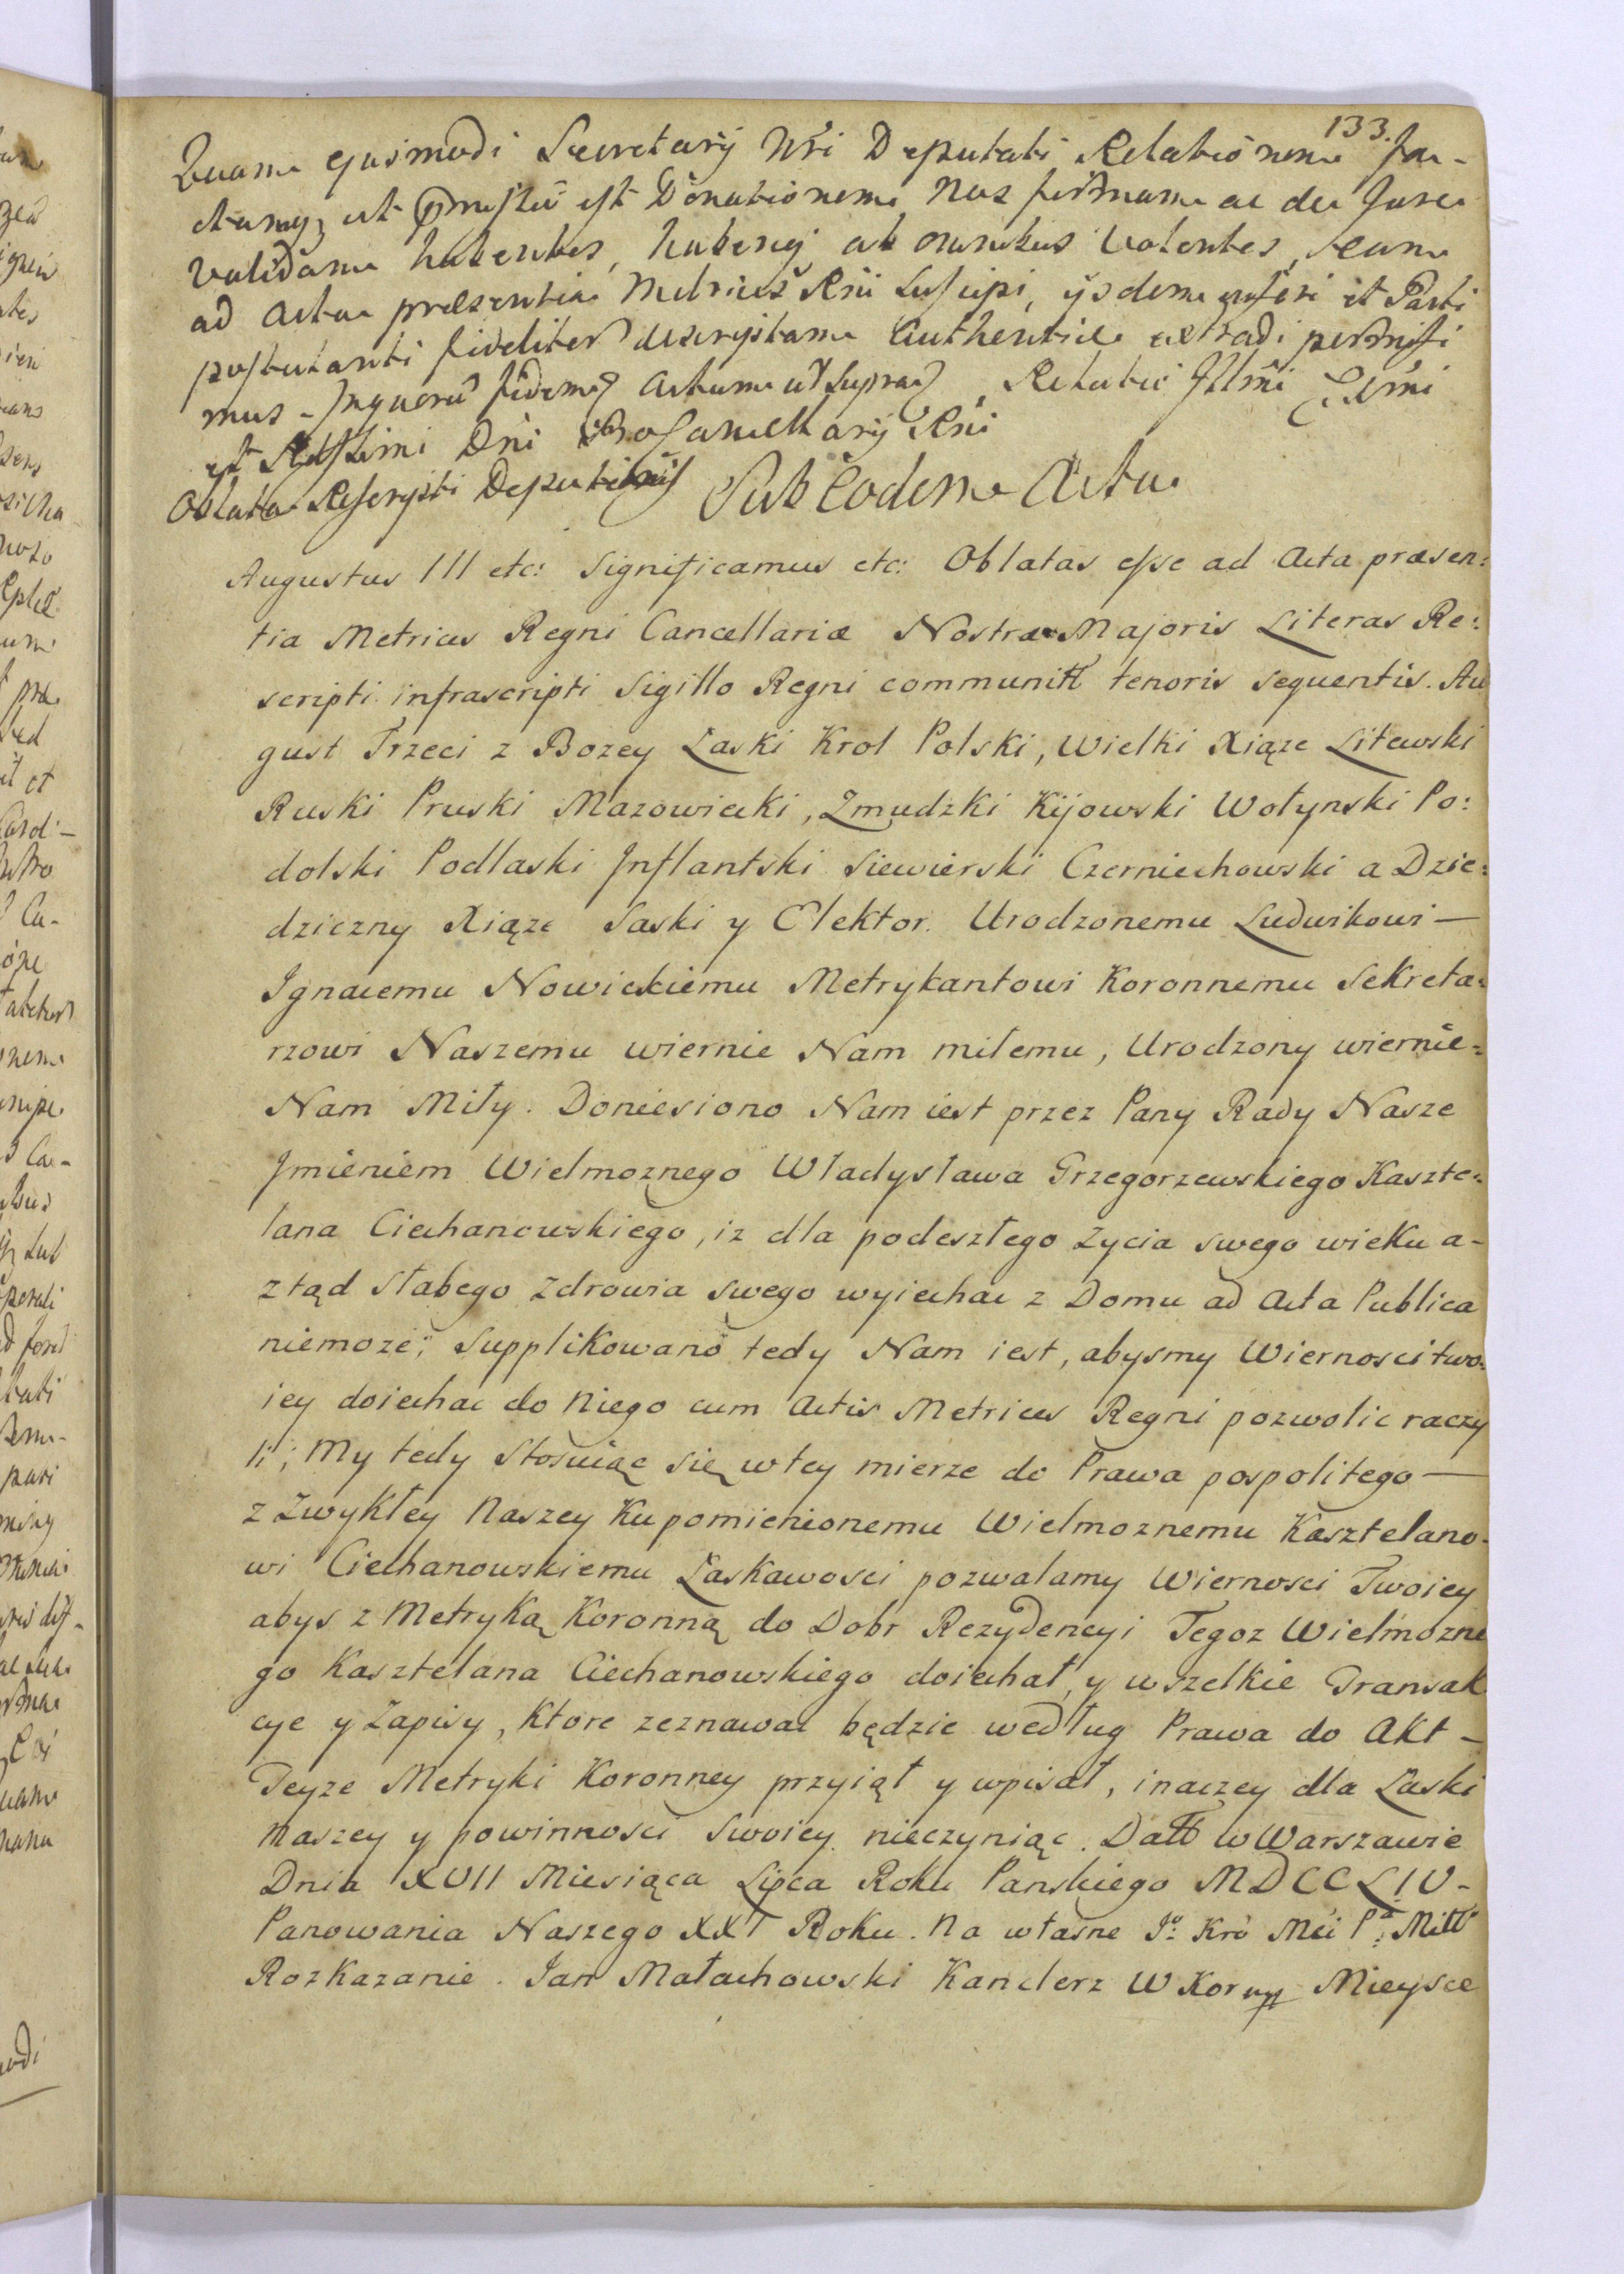 133.
Quam ejusmodi Secretarij Nri Deputati Relationem fa-
ctamq; ut est Donationem Nos firmam ac de Jure
validam habentes, haberiq; ab omnibus Volentes, eam
ad Acta praesentia Metrices Rñi Suscipi, ijsdem inseri et Parti
postulanti fideliter descriptam Authentice extradi permisi
mus - Inquorũ fidem Actum ut Supra Relatio Illmi Exmi
et Rdssimi Dñi ProCancellarij Rñi
Oblata Rescripti Deputationis Sub Eodem Actu
Augustus III etc: Significamus etc: Oblatas esse ad Acta præsen:
tia Metrices Regni Cancellariæ Nostræ Majoris Literas Re:
scripti infrascripti Sigillo Regni communitt tenoris sequentis. Au
gust Trzeci z Bozey Łaski Krol Polski, Wielki Xiąze Litewski
Ruski Pruski Mazowiecki, Zmudzki Kijowski Wołynski Po:
dolski Podlaski Inflantski Siewierski Czerniechowski a Dzie:
dziczny Xiąze Saski y Elektor. Urodzonemu Ludwikowi —
Ignacemu Nowickiemu Metrykantowi Koronnemu Sekreta:
rzowi Naszemu wiernie Nam miłemu, Urodzony wiernie:
Nam Miły. Doniesiono Nam iest przez Pany Rady Nasze
Jmieniem Wielmoznego Władysława Grzegorzewskiego Kaszte:
lana Ciechanowskiego, iz dla podeszłego Zycia swego wieku a-
ztąd słabego zdrowia swego wyiechac z Domu ad Acta Publica
niemoze; Supplikowano tedy Nam iest, abysmy Wiernosci two:
iey doiechac do Niego cum Actis Metrices Regni pozwolic raczy
li; My tedy Stosuiąc się wtey mierze do Prawa pospolitego —
z Zwykłey Naszey Ku pomienionemu Wielmoznemu Kasztelano-
wi Ciechanowskiemu Łaskawosci pozwalamy Wiernosci Twoiey
abys z Metryką Koronną do Dobr Rezydencyi Tegoz Wielmozne
go Kasztelana Ciechanowskiego doiechał, y wszelkie Transak
cye y Zapisy, Ktore zeznawac będzie według Prawa do Akt -
Teyze Metryki Koronney przyiął y wpisał, inaczey dla Łaski
Naszey y powinnosci Swoiey nieczyniąc. Datt w Warszawie
Dnia XVII Miesiąca Lipca Roku Panskiego MDCCLIV -
Panowania Naszego XXI Roku. Na własne Jo Kro Mci Pa: Mitt
Rozkazanie. Jan Małachowski Kanclerz W Kor Mieysce